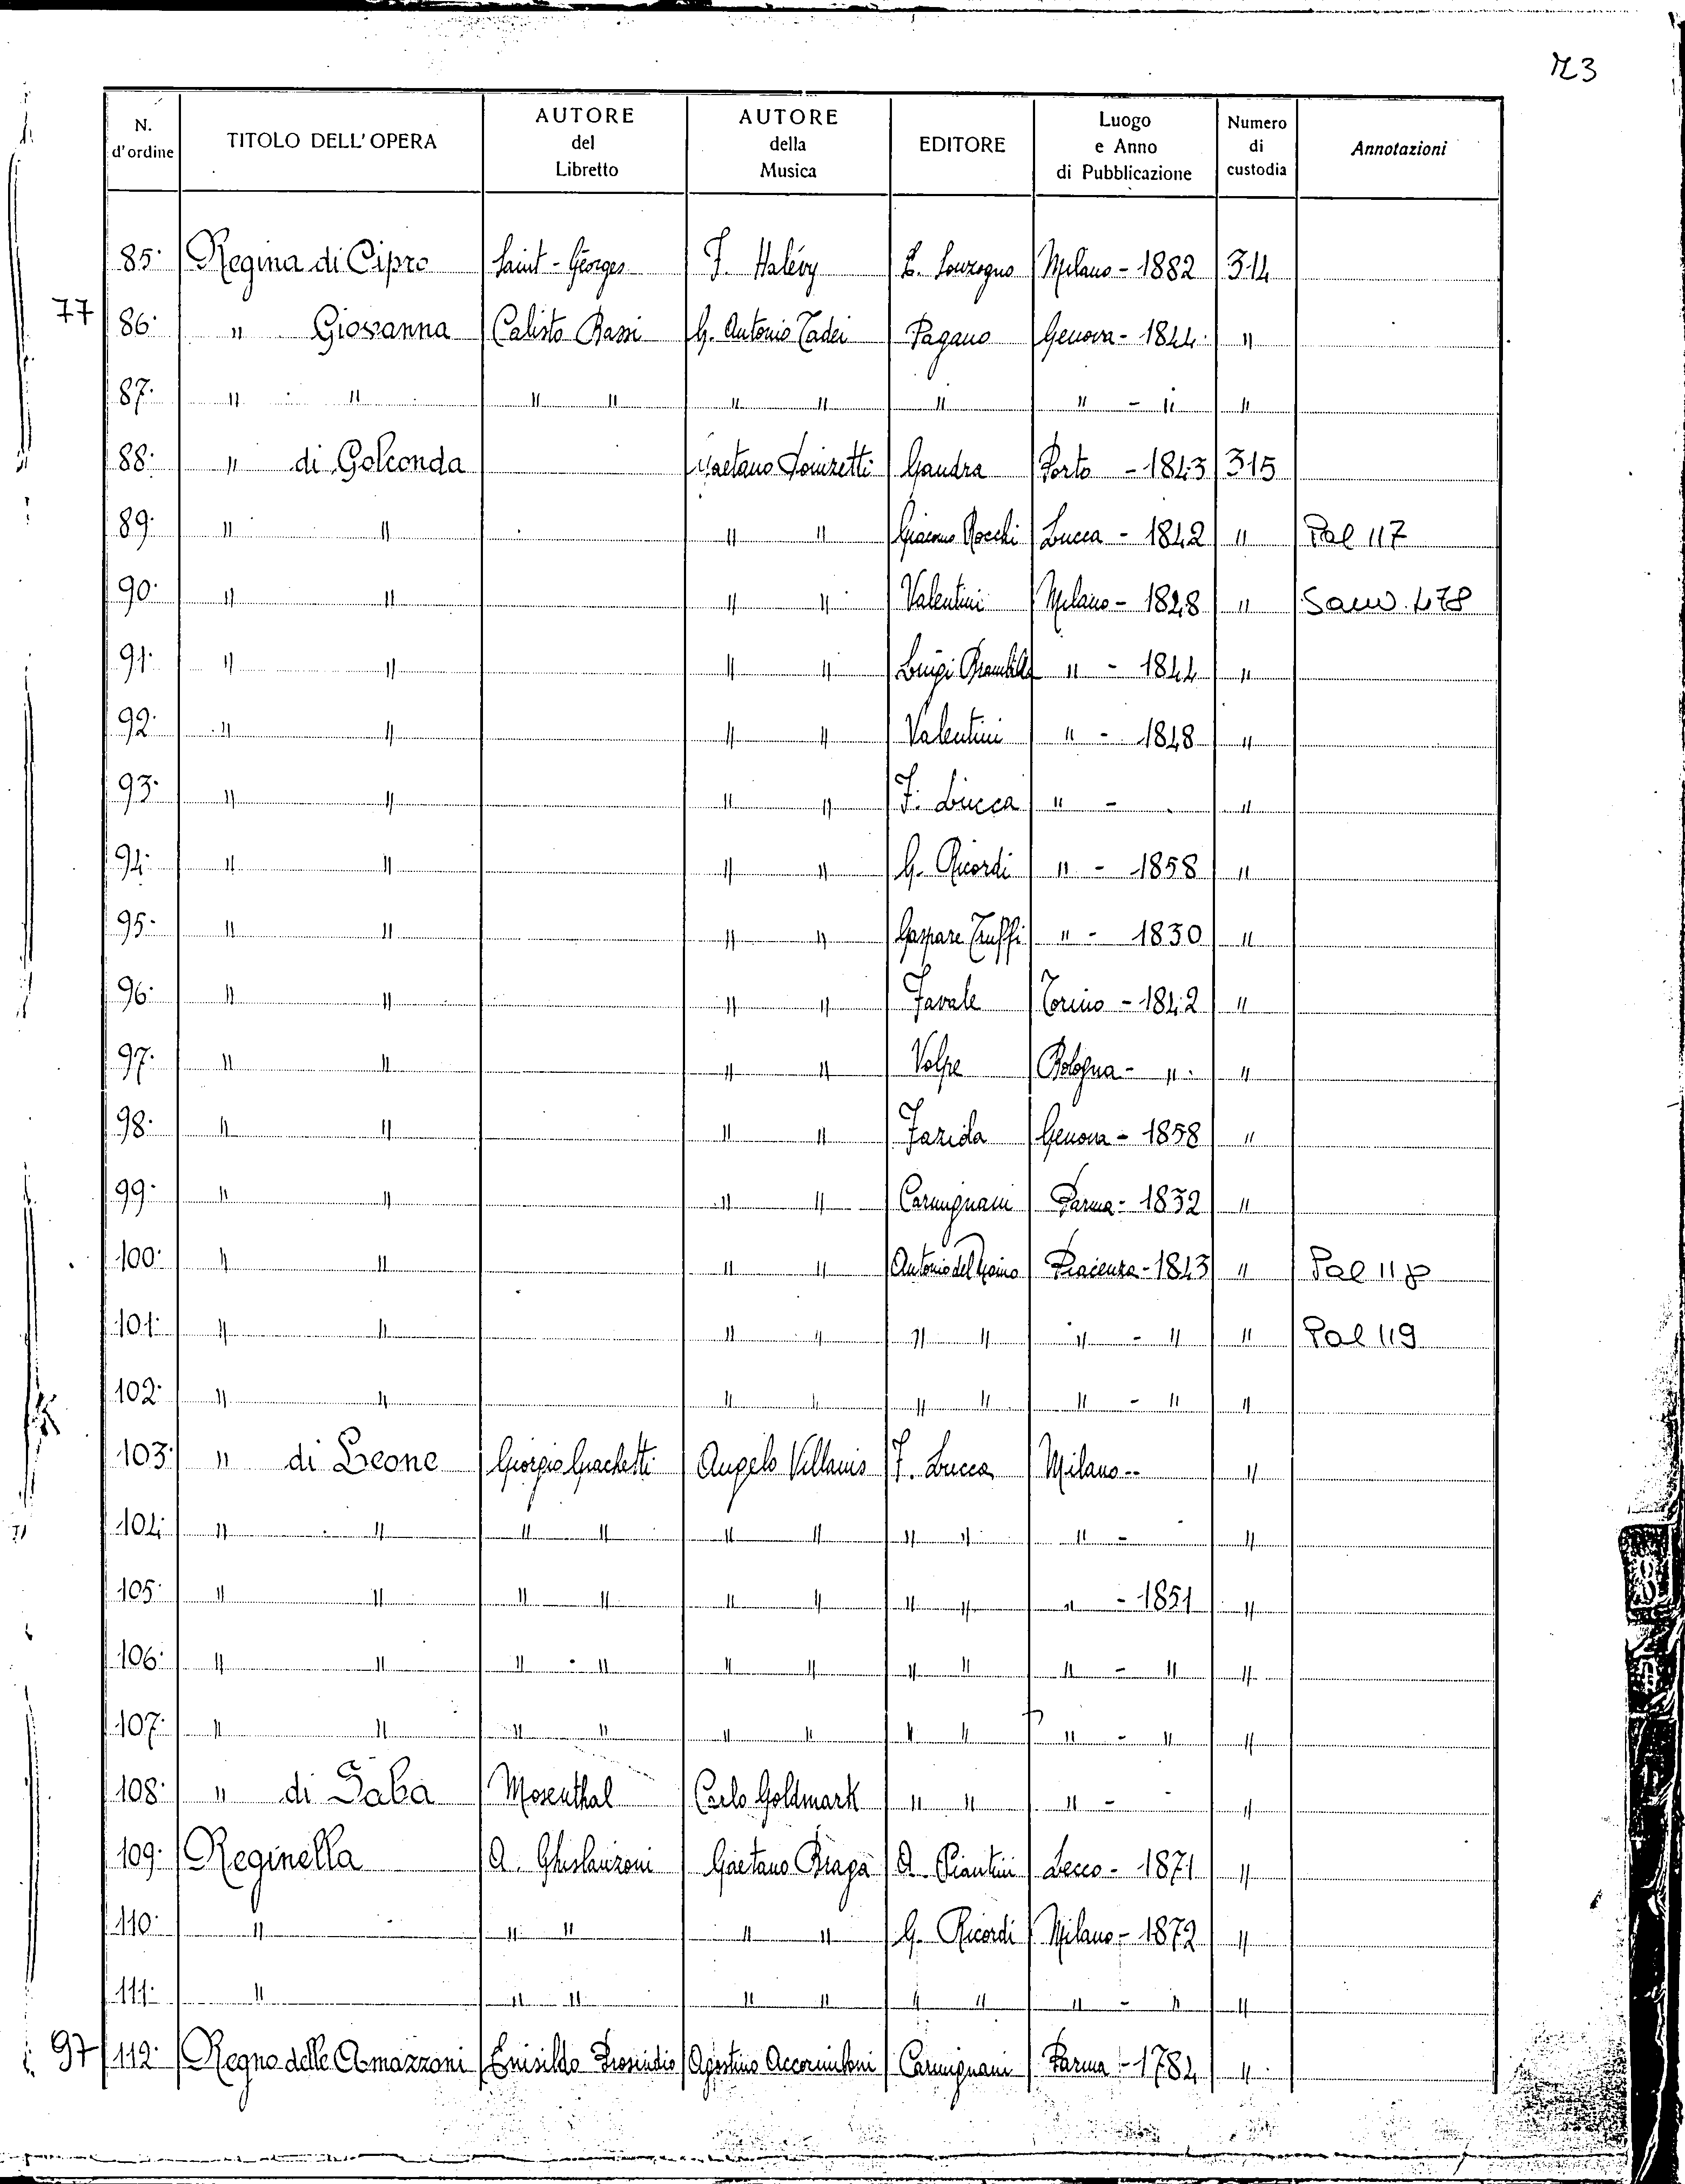 R 3
N. d'ordine TITOLO DELL'OPERA AUTORE del Libretto AUTORE della Musica EDITORE Luogo e Anno di Pubblicazione Numero di custodia Annotazioni
85. Regina di Cipro Saint-Georges F. Halévy E. Sonzogno Milano - 1882 314
77 86. " Giovanna Calisto Bassi G. Antonio Tadei Pagano Genova - 1844. "
87. " " " " " " " " - " "
88. " di Golconda Gaetano Donizetti Gandra Porto - 1843 315
89. " " " " Giacomo Rocchi Lucca - 1842 " Pal 117
90. " " " " Valentini Milano - 1828 " Sanv. 478
91. " " " " Luigi Brambilla " - 1844 "
92. " " " " Valentini " - 1848 "
93. " " " " F. Lucca " - "
94. " " " " G. Ricordi " - 1858 "
95. " " " " Gaspare Truffi " - 1830 "
96. " " " " Favale Torino - 1842 "
97. " " " " Volpe Bologna - " "
98. " " " " Faziola Genova - 1858 "
99. " " " " Carmignani Parma - 1832 "
100. " " " " Antonio del Piacenza - 1843 " Pal 118
101. " " " " " " " - " " Pal 119
102. " " " " " " " - " "
103. " di Leone Giorgio Giachetti Angelo Villanis F. Lucca Milano - "
104. " " " " " " " " " - "
105. " " " " " " " " " - 1851 "
106. " " " " " " " " " - " "
107. " " " " " " " " " - " "
108. " di Saba Mosenthal Carlo Goldmark " " " - "
109. Reginella A. Ghislanzoni Gaetano Braga A. Piantini Lecco - 1871 "
110. " " " " " G. Ricordi Milano - 1872 "
111. " " " " " " " " - " "
97 112. Regno delle Amazzoni Enisildo Prosindio Agostino Accorimboni Carmignani Parma - 1784 "